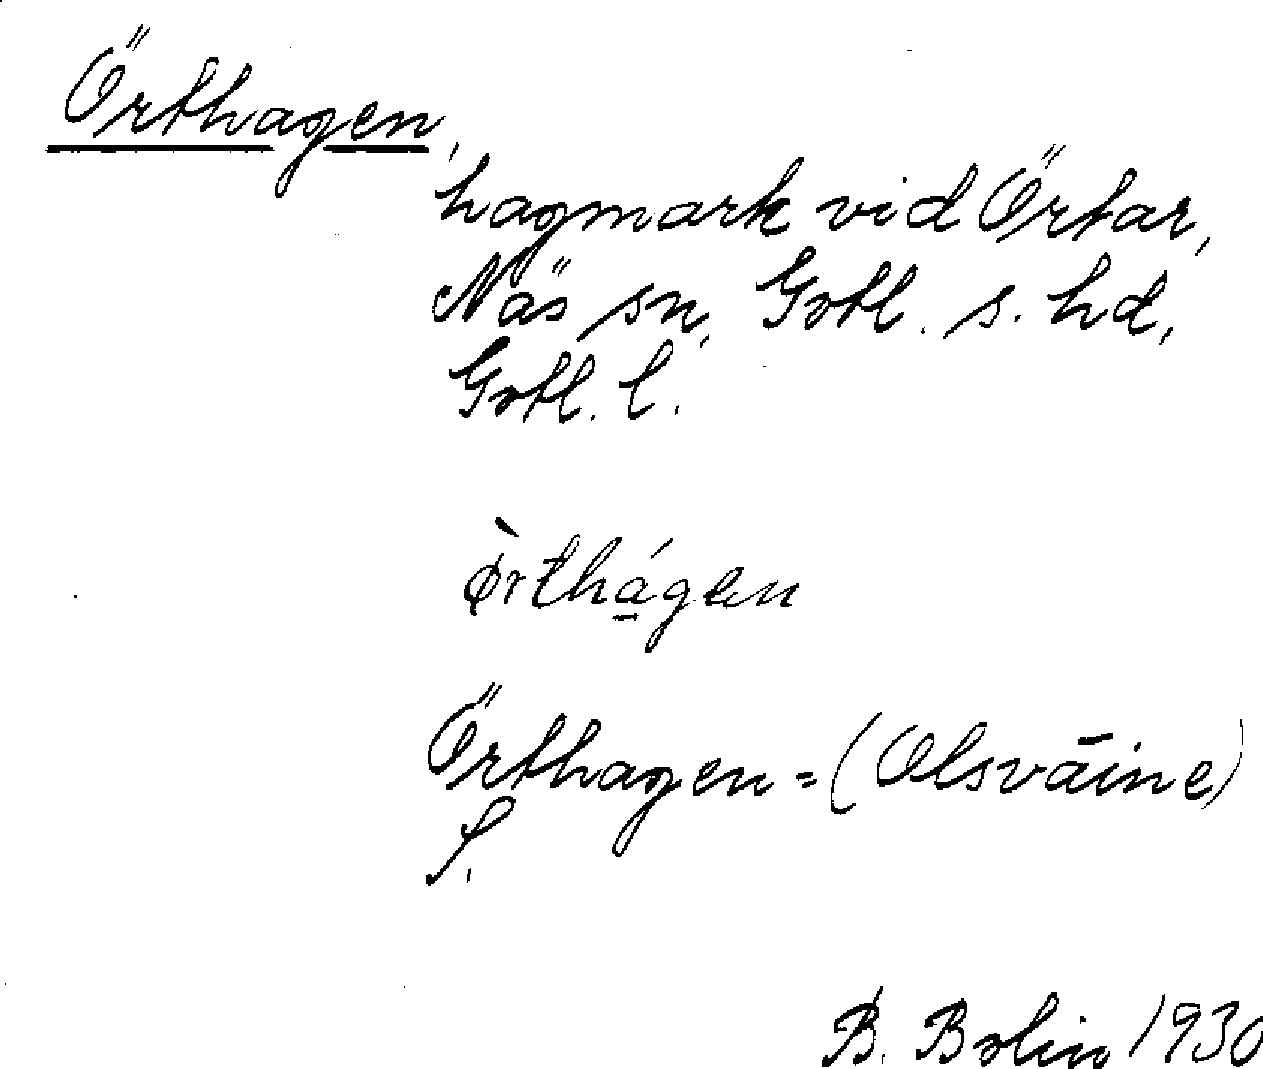 Örthagen,
hagmark vid Örtar,
Näs sn, Gotl. s. hd,
Gotl. l.
ø̀rthá̱gen
Örthagen = (Olsvāine)
f.
B. Bolin 1930